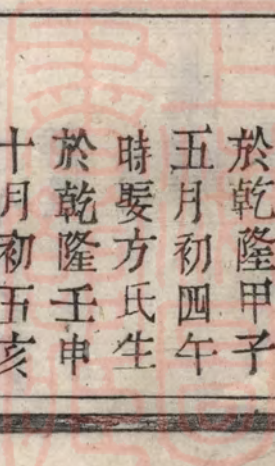 於乾隆甲子
五月初四午
時娶方氏生
於乾隆壬申
十月初五亥